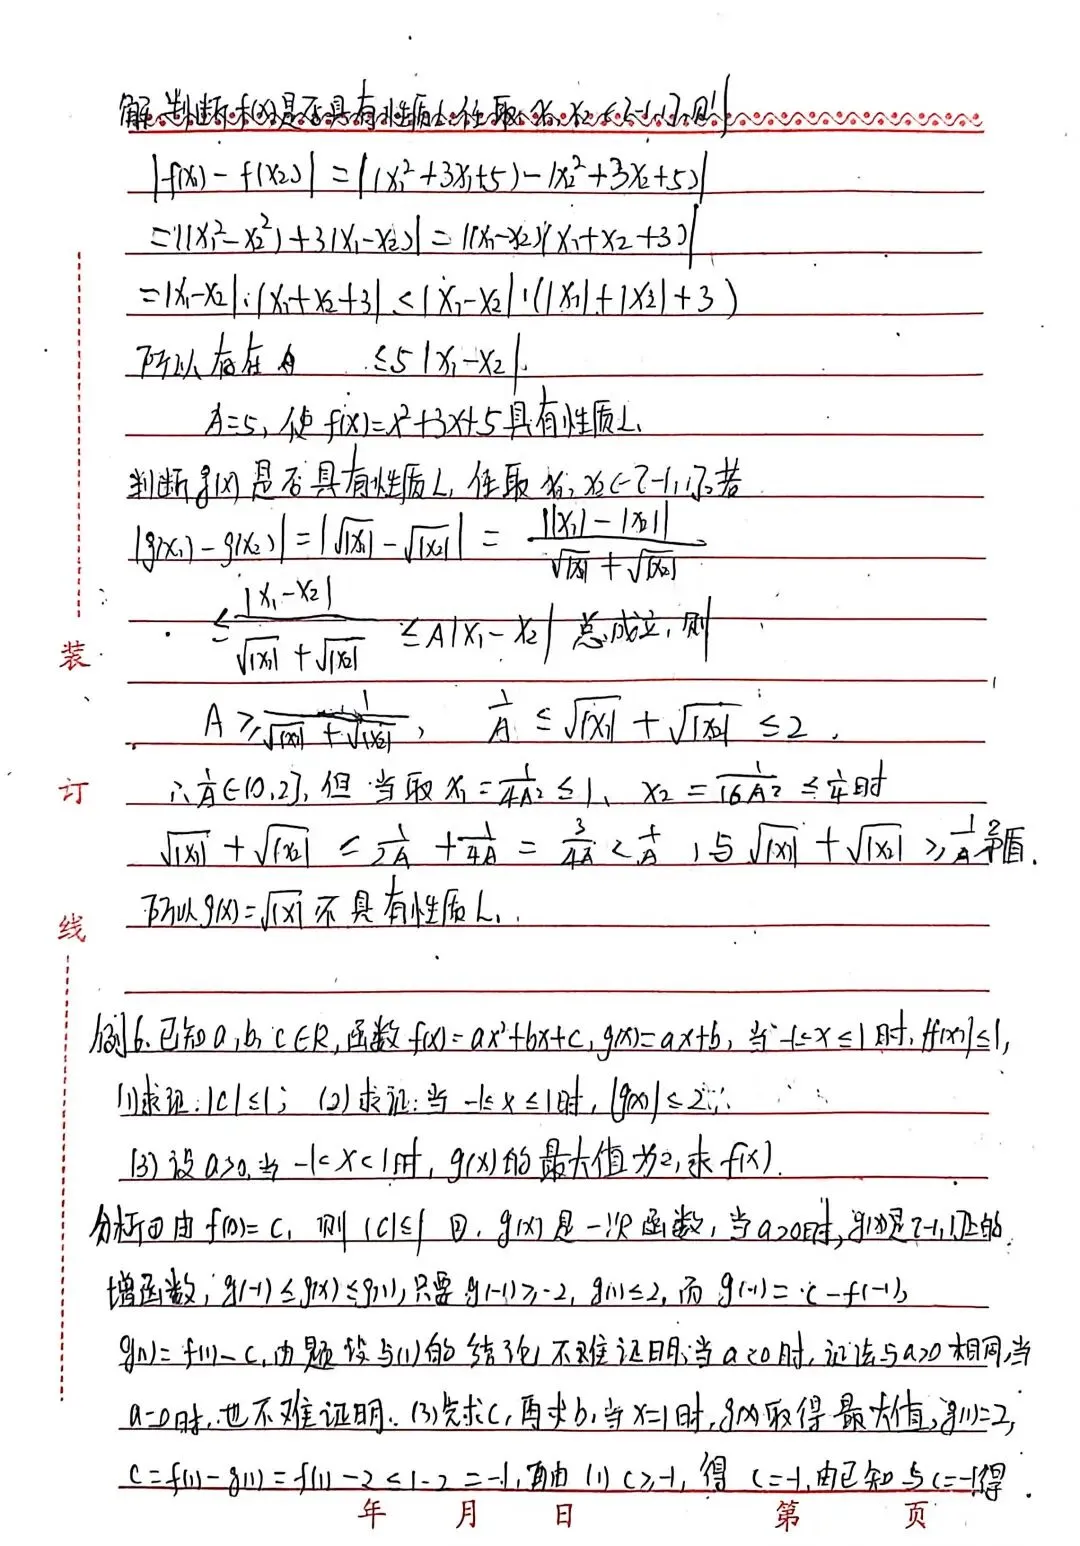 解 判断f(x)是否具有性质L,任取x₁,x₂∈[-1,1],则
|f(x₁)-f(x₂)|=|(x₁²+3x₁+5)-(x₂²+3x₂+5)|
=|(x₁²-x₂²)+3(x₁-x₂)|=|(x₁-x₂)(x₁+x₂+3)|
=|x₁-x₂|·|x₁+x₂+3|≤|x₁-x₂|·(|x₁|+|x₂|+3)
所以存在A ≤5|x₁-x₂|.
A=5,使f(x)=x²+3x+5具有性质L.
判断g(x)是否具有性质L,任取x₁,x₂∈[-1,1],若
|g(x₁)-g(x₂)|=|√|x₁|-√|x₂||=||x₁|-|x₂||/(√|x₁|+√|x₂|)
≤|x₁-x₂|/(√|x₁|+√|x₂|)≤A|x₁-x₂|总成立,则
A≥1/(√|x₁|+√|x₂|), 1/A≤√|x₁|+√|x₂|≤2.
∴1/A∈(0,2],但当取x₁=1/4A²≤1、x₂=1/16A²≤1/4时
√|x₁|+√|x₂|≤1/2A+1/4A=3/4A<1/A,与√|x₁|+√|x₂|≥1/A矛盾.
所以g(x)=√|x|不具有性质L.
装
订
线
例6.已知a,b,c∈R,函数f(x)=ax²+bx+c,g(x)=ax+b,当-1≤x≤1时,|f(x)|≤1,
(1)求证:|c|≤1; (2)求证:当-1≤x≤1时,|g(x)|≤2;
(3)设a>0,当-1≤x≤1时,g(x)的最大值为2,求f(x).
分析①由f(0)=c,则|c|≤1 ②,g(x)是一次函数,当a>0时,g(x)是[-1,1]上的
增函数,g(-1)≤g(x)≤g(1),只要g(-1)≥-2,g(1)≤2,而g(-1)=c-f(-1),
g(1)=f(1)-c,由题设与(1)的结论,不难证明;当a<0时,证法与a>0相同,当
a=0时,也不难证明.(3)先求c,再求b,当x=1时,g(x)取得最大值,g(1)=2,
c=f(1)-g(1)=f(1)-2≤1-2=-1,再由(1)c≥-1,得c=-1,由已知与c=-1得
年 月 日 第 页